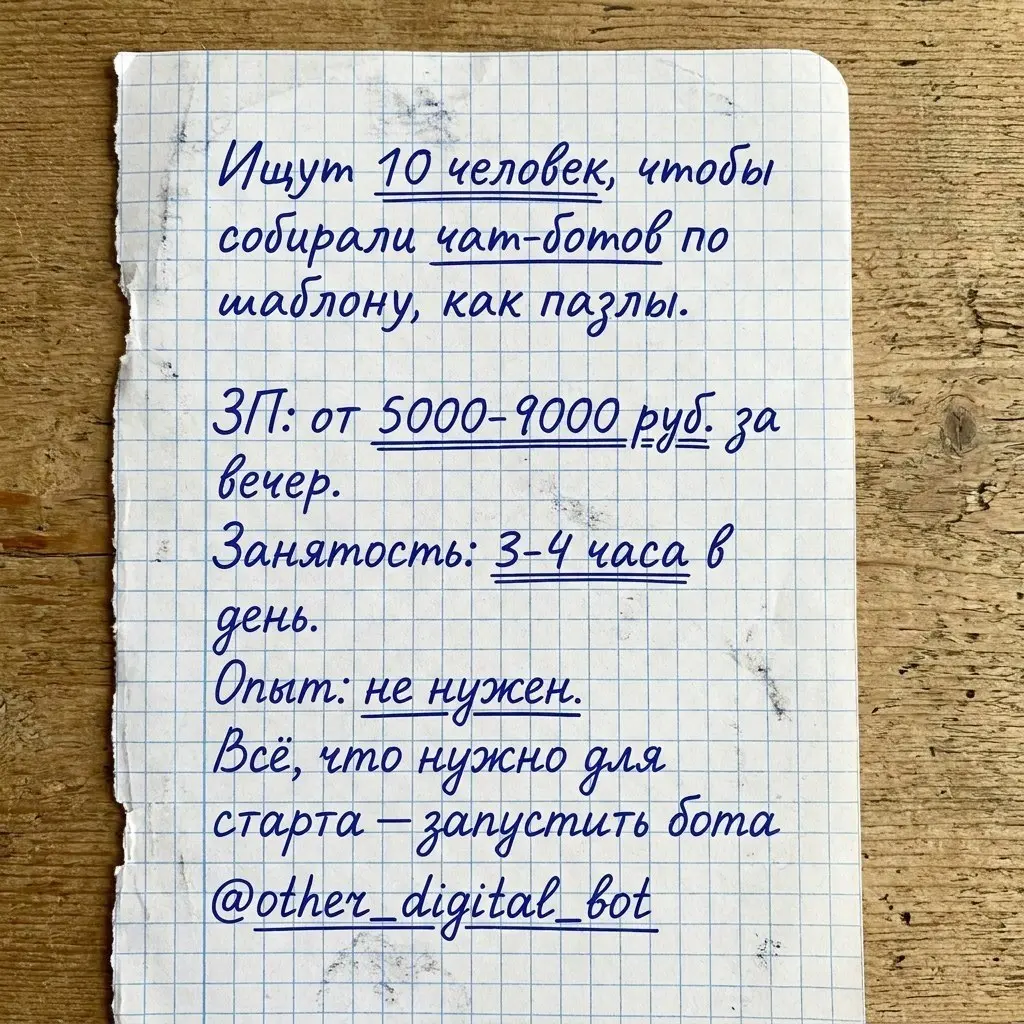 Ищут 10 человек, чтобы
собирали чат-ботов по
шаблону, как пазлы.
ЗП: от 5000-9000 руб. за
вечер.
Занятость: 3-4 часа в
день.
Опыт: не нужен.
Всё, что нужно для
старта — запустить бота
@other_digital_bot